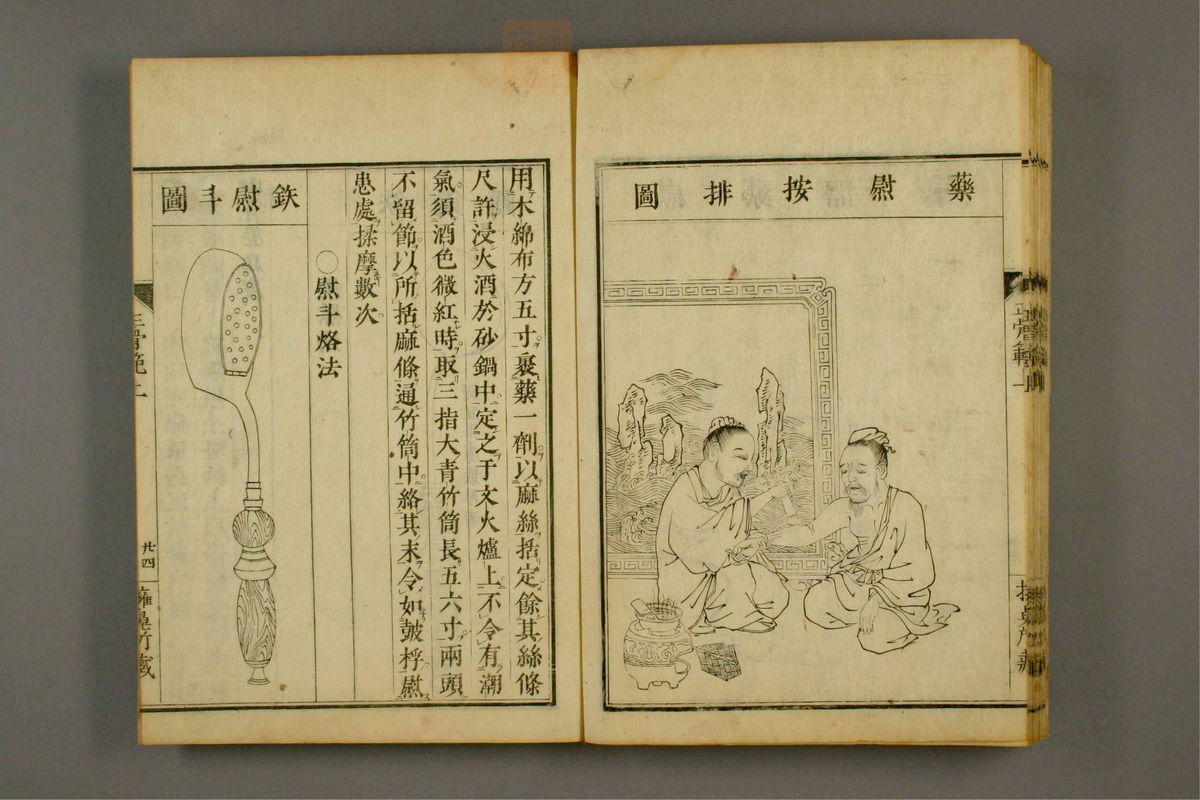 藥慰按排圖
用木綿布方五寸裹藥一劑以麻絲括定餘其絲條
尺許浸火酒於砂鍋中定之于文火爐上不令有潮
氣須酒色微紅時取三指大青竹筒長五六寸兩頭
不留節以所括麻條通竹筒中絡其末令如皷桴慰
患處揉摩數次
○慰斗烙法
鉄慰斗圖
廿四